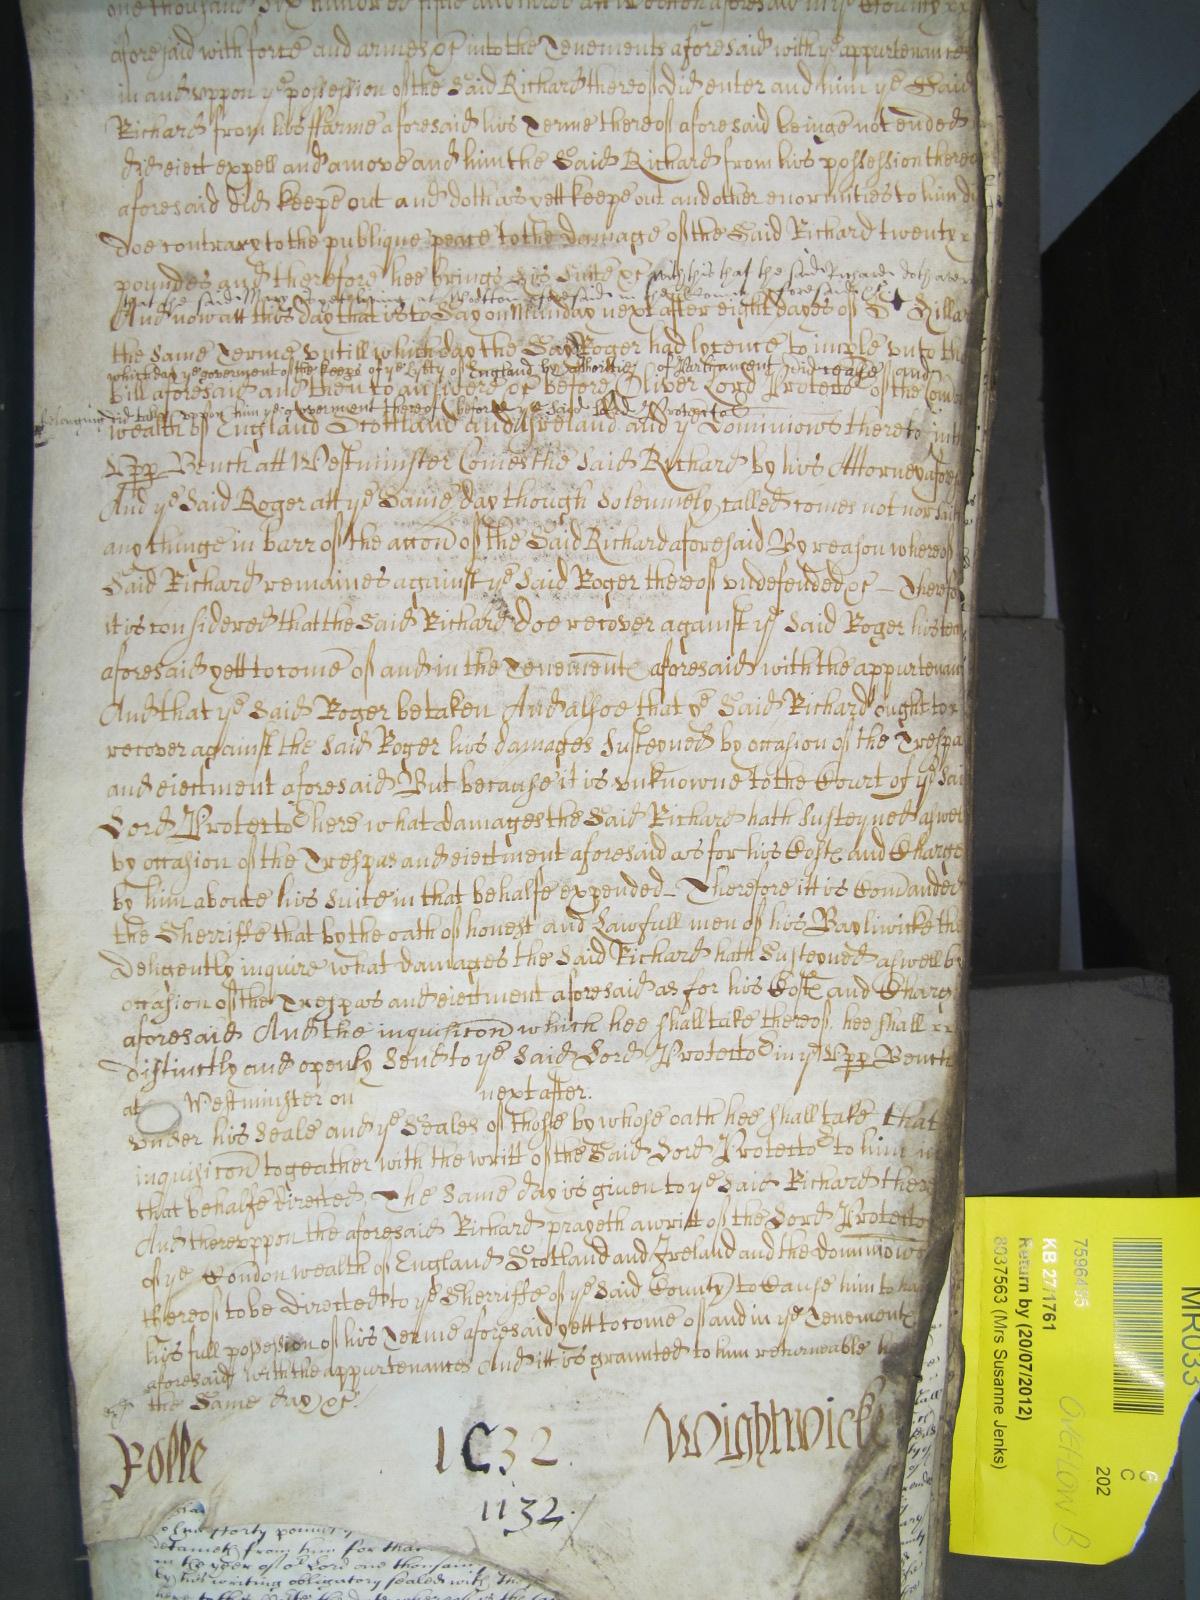 one thousand six hundred fiftie and three att Wotton aforesaid in ye County
aforesaid with force and armes &c into the Tenements aforesaid with ye appurtenances
in and uppon ye possession of the Said Richard thereof did enter and him ye Said
Richard from his ffarme aforesaid his Terme thereof aforesaid beinge not ended
did eiect expell and amove and him the Said Richard from his possession thereof
aforesaid did keepe out and doth as yett keepe out and other enormities to him di
doe contrary to the publique peace to the damage of the Said Richard twenty
poundes and therefore hee brings his suite &c with this that the said Richard doth aver
that the said Mary is yett living at Wotton aforesaid in the County aforesaid &c
And now att this day that is to Say on Munday next after eight dayes of St Hillar
the same Terme untill which day the Said Roger had lycence to imple unto the
which day ye goverment of the keeps of ye Libty of England by authoritie of Parliament did cease and
bill aforesaid and then to answere &c before Oliver Lord Protector of the Comon
belonging did take uppon him ye goverment thereof before ye said Lord Protector
wealth of England Scottland and Ireland and ye Dominions thereto in the
Upp Bench att Westminster Comes the Said Richard by his Attorney afores
And ye Said Roger att ye Same day though Solemnely called comes not nor sa
any thinge in barr of the accon of the Said Richard aforesaid By reason whereof
Said Richard remaines against ye Said Roger thereof undefended &c – Therefo
it is considered that the Said Richard doe recover against ye Said Roger his te
aforesaid yett to come of and in the Tenements aforesaid with the appurtenan
And that ye Said Roger be taken And alsoe that ye Said Richard ought to
recover against the Said Roger his damages Susteyned by occasion of the Trespa
and eiectment aforesaid But because it is unknowne to the Court of ye Sai
Lord Protector here what damages the Said Richard hath Susteyned aswell
by occasion of the Trespas and eiectment aforesaid as for his Costs and Charge
by him aboute his suite in that behalfe expended – Therefore itt is Comanded
the Sherriffe that by the oath of honest and Lawfull men of his Bayliwicke the
Deligently inquire what damages the Said Richard hath Susteyned aswell by
occasion of the Trespas and eiectment aforesaid as for his Costs and Charg
aforesaid And the inquisicon which hee shall take thereof hee shall
distinctly and openly Send to ye Said Lord Protector in ye Upp Bench
at Westminster on next after
under his Seale and ye Seales of those by whose oath hee shall take that
inquisicon togeather with the writt of the Said Lord Protector to him in
that behalfe directed The Same day is given to ye Said Richard there
And thereuppon the aforesaid Richard prayeth a writt of the Lord Protector
of ye Comonwealth of England Scotland and Ireland and the dominions
thereof to be directed to ye Sherriffe of ye Said County to Cause him to have
his full possession of his Terme aforesaid yett to come of and in ye Tenements
aforesaid with the appurtenances And itt is graunted to him returneable he
the Same day &c
Rolle 1C32 Wightwicke
1132
forty pounds
detaineth from him for that
in the yeer of or Lord one thousand
by his writing obligatory sealed with
MR033
G
C
202
7596495
KB 27/1761
Return by (20/07/2012)
8037563 (Mrs Susanne Jenks)
OVERFLOW B